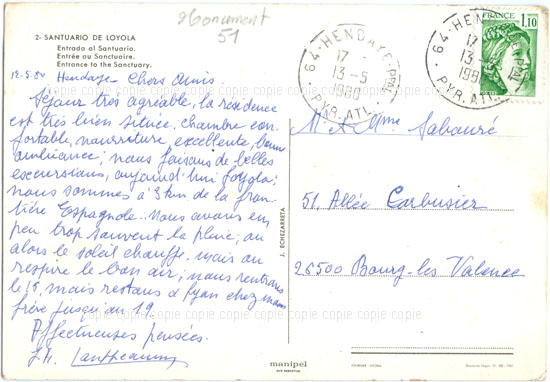 Monument
51
2- SANTUARIO DE LOYOLA
Entrada al Santuario.
Entrée au Sanctuaire.
Entrance to the Sanctuary.
12.5.80 Hendaye - Chers Amis.
Séjour très agréable, la résidence
est très bien située, chambre con-
fortable, nourriture, excellente, bonne
ambiance; nous faisons de belles
excursions, aujourd'hui Loyola;
nous sommes à 3 km de la fron-
tière Espagnole. Nous avons un
peu trop souvent la pluie, ou
alors le soleil chauffe. mais on
respire le bon air; nous rentrons
le 18, mais restons à Lyon chez mon
frère jusqu'au 19
Affectueuses pensées.
J. ECHEZARRETA
manipel
SAN SEBASTIAN
64 - HENDAYE - PPAL
17 -
13-5
1980
PYR. ATL.
64 - HENDAYE - PPAL
17 -
13-5
1980
PYR. ATL.
FRANCE
1,10
M. et Mme Sabouré
51, Allée Corbusier
26500 Bourg-les Valence
copie copie copie copie copie copie copie copie copie copie copie copie